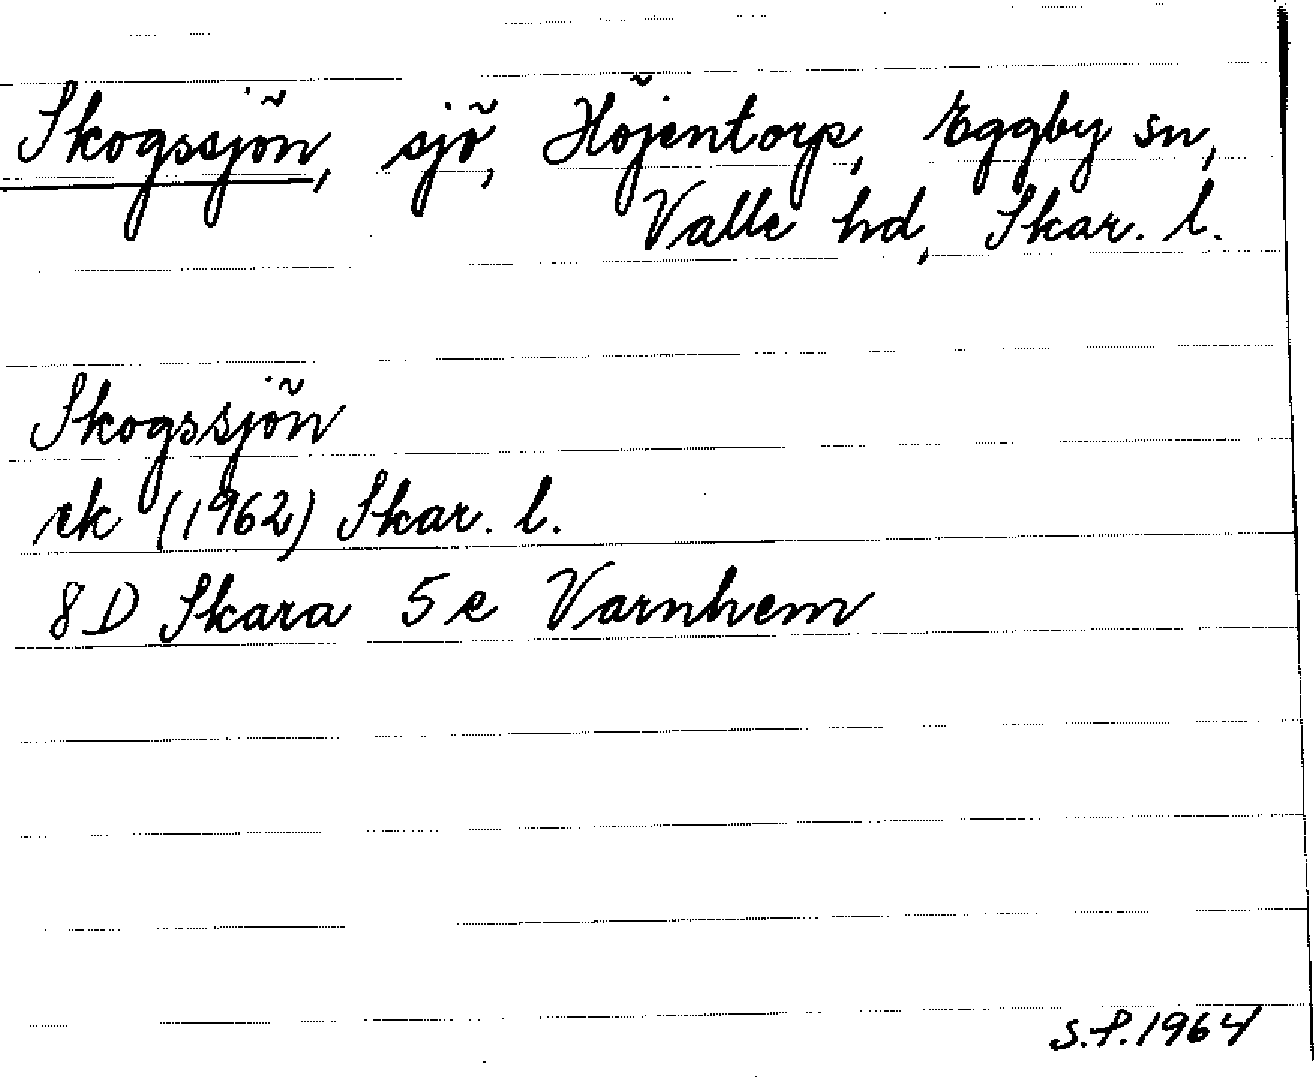 Skogssjön, sjö, Höjentorp, Eggby sn,
Valle hd, Skar. l.
Skogssjön
ek (1962) Skar. l.
8D Skara 5e Varnhem
S.P. 1964